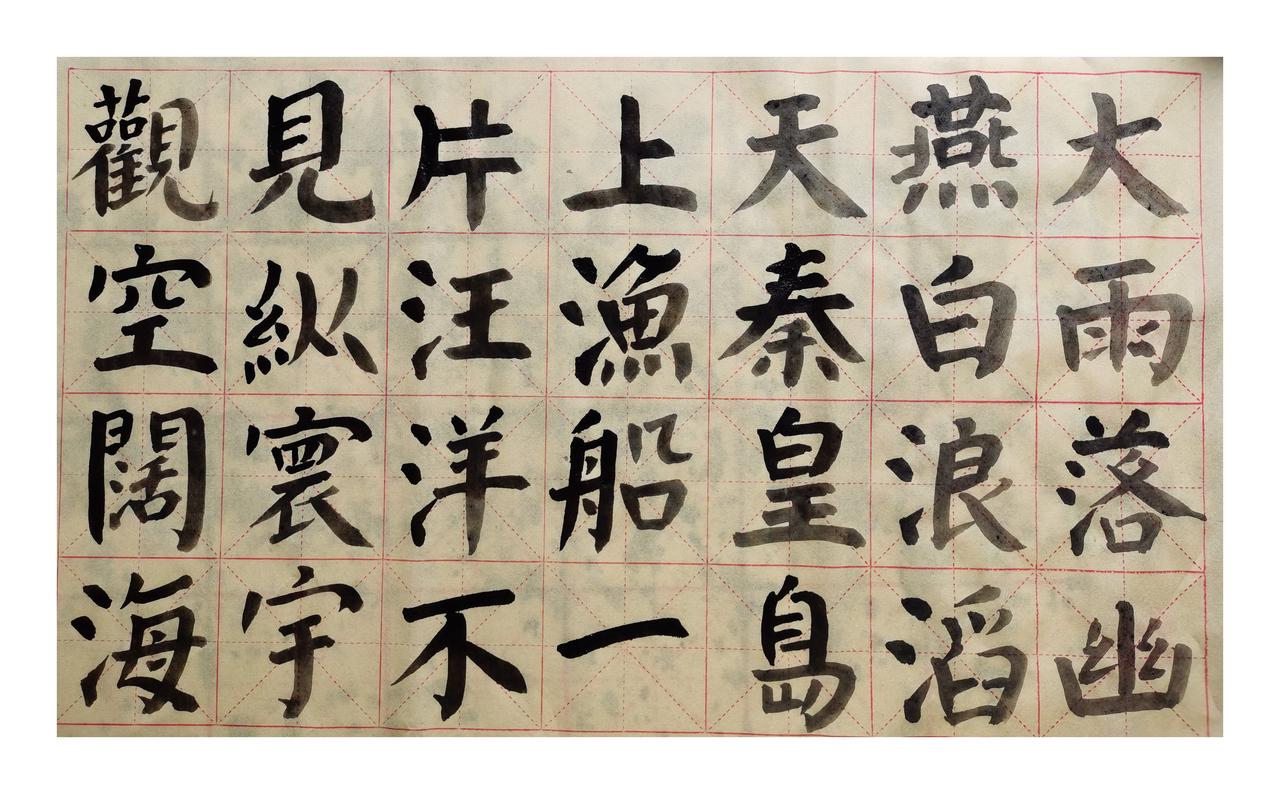 大雨落幽
燕白浪滔
天秦皇島
上漁船一
片汪洋不
見纵寰宇
觀空闊海